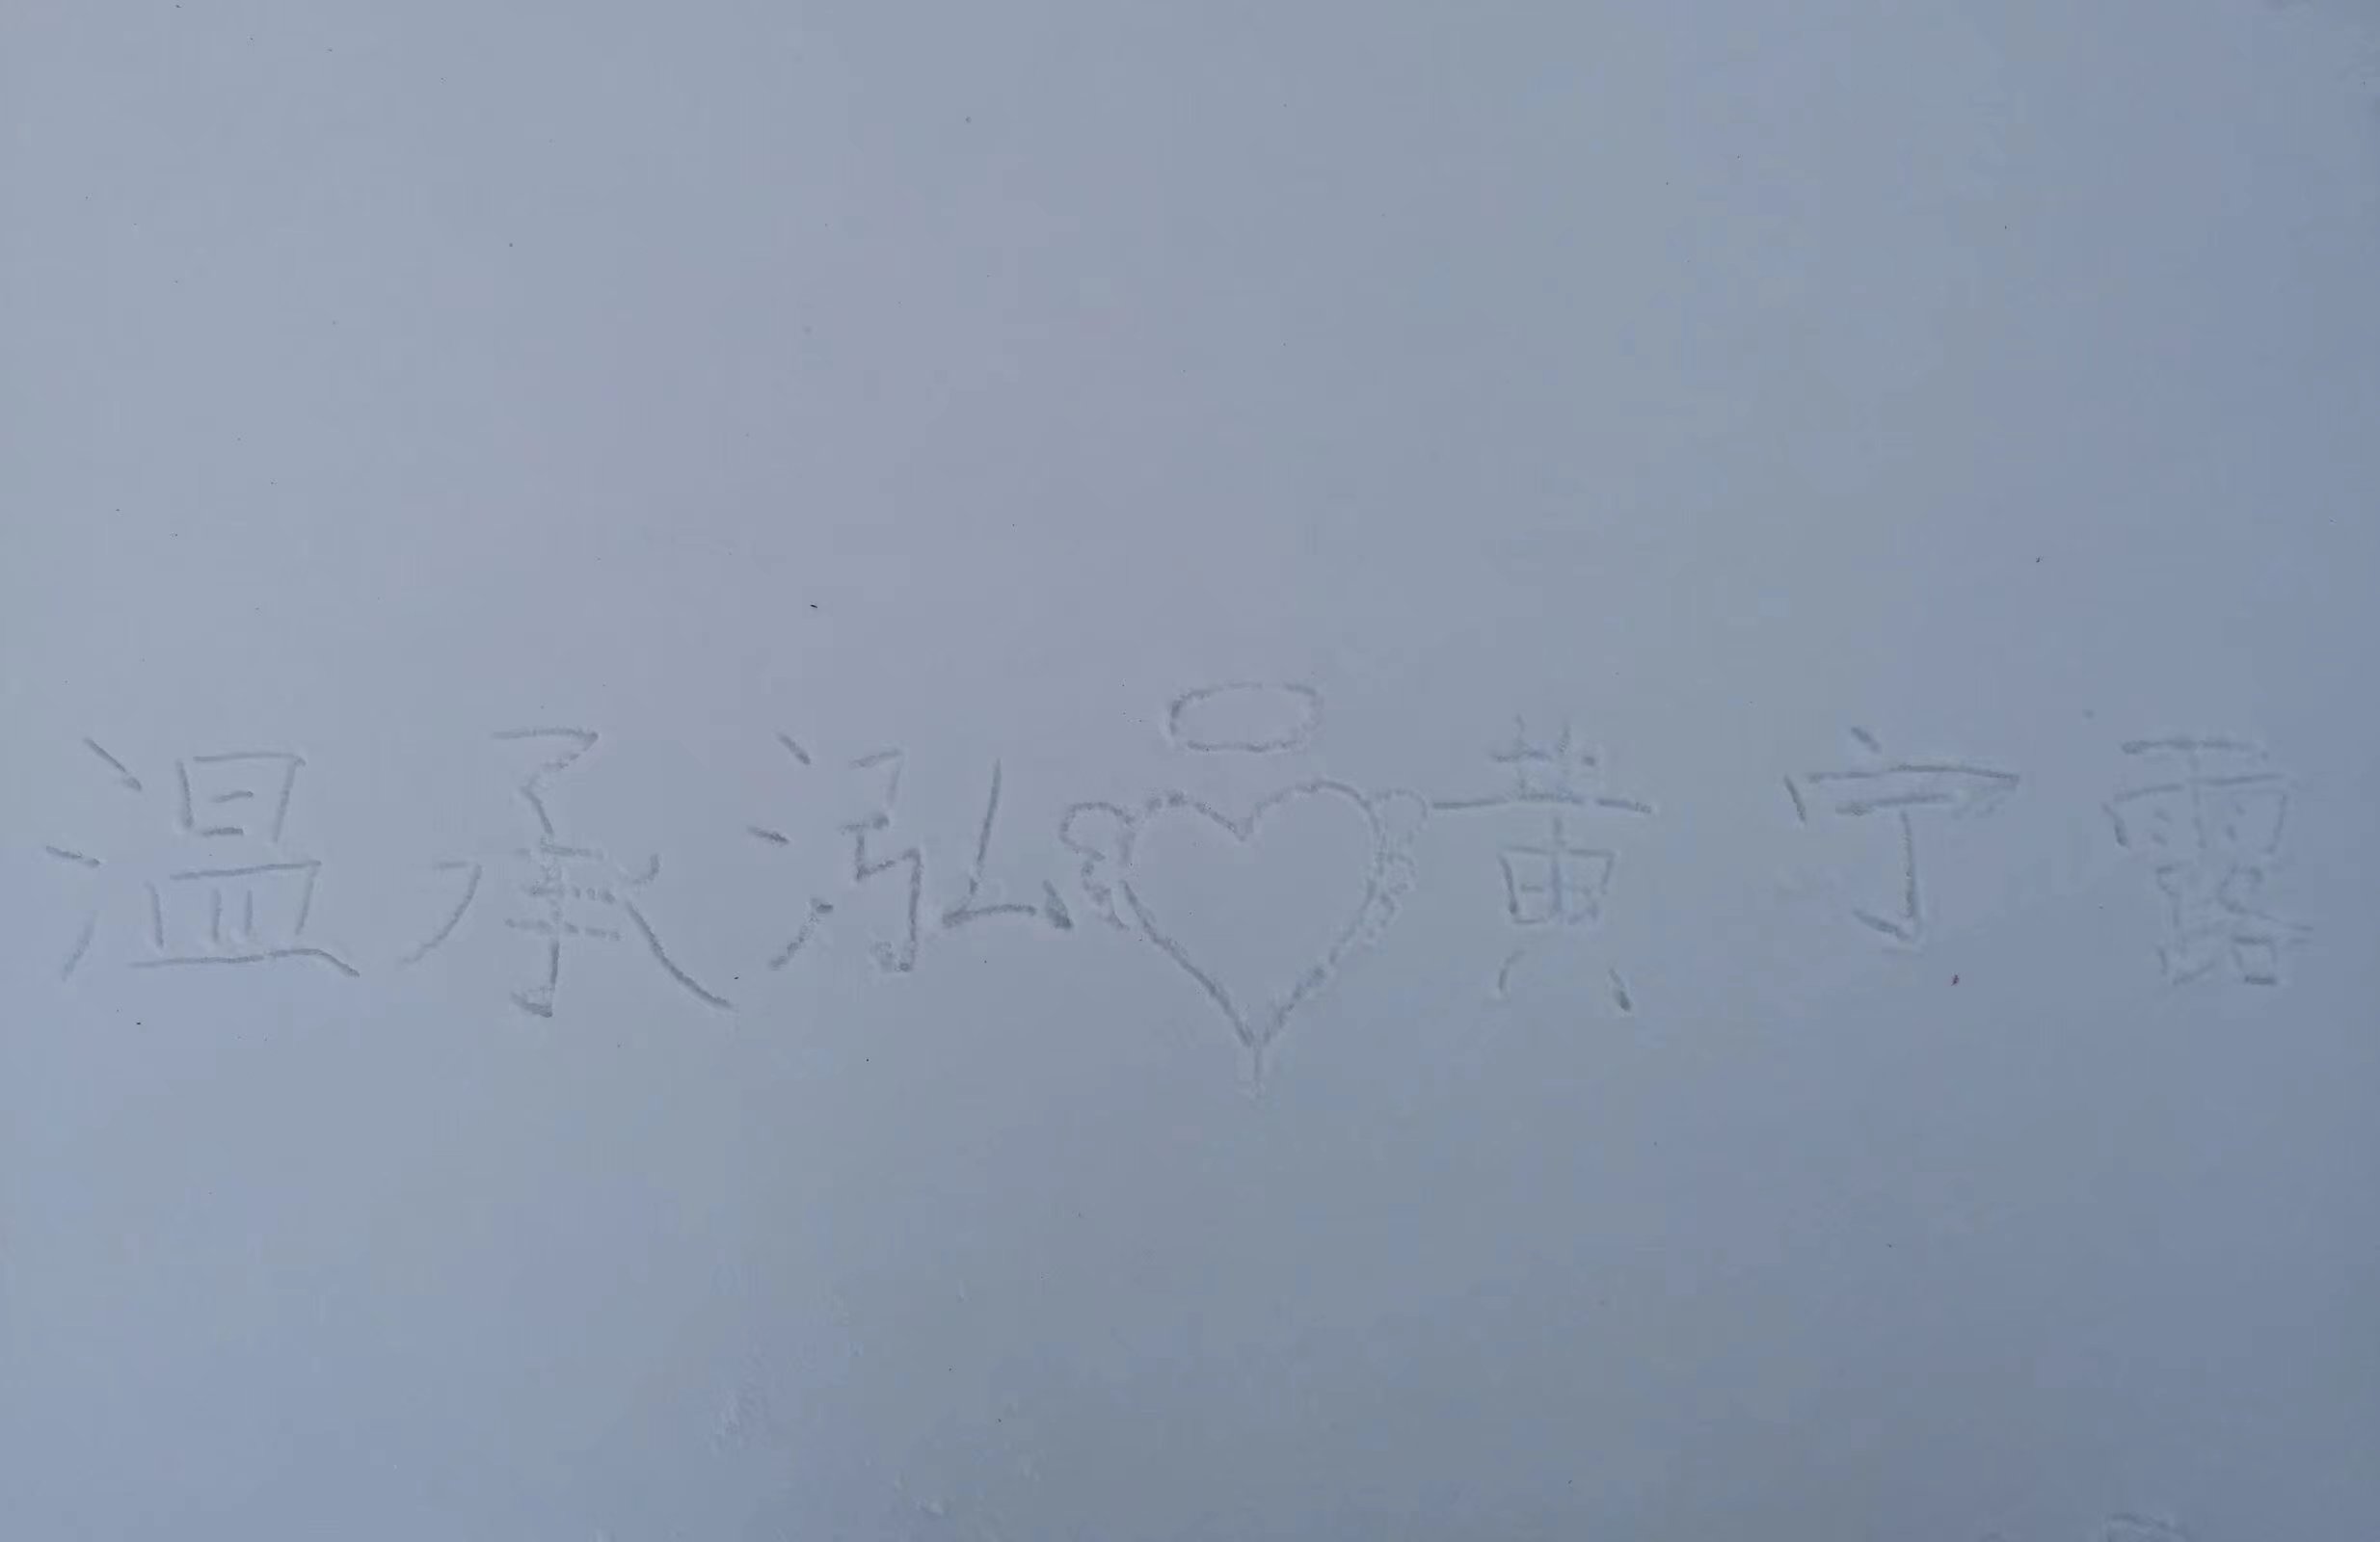 温承泓♡黄宁露